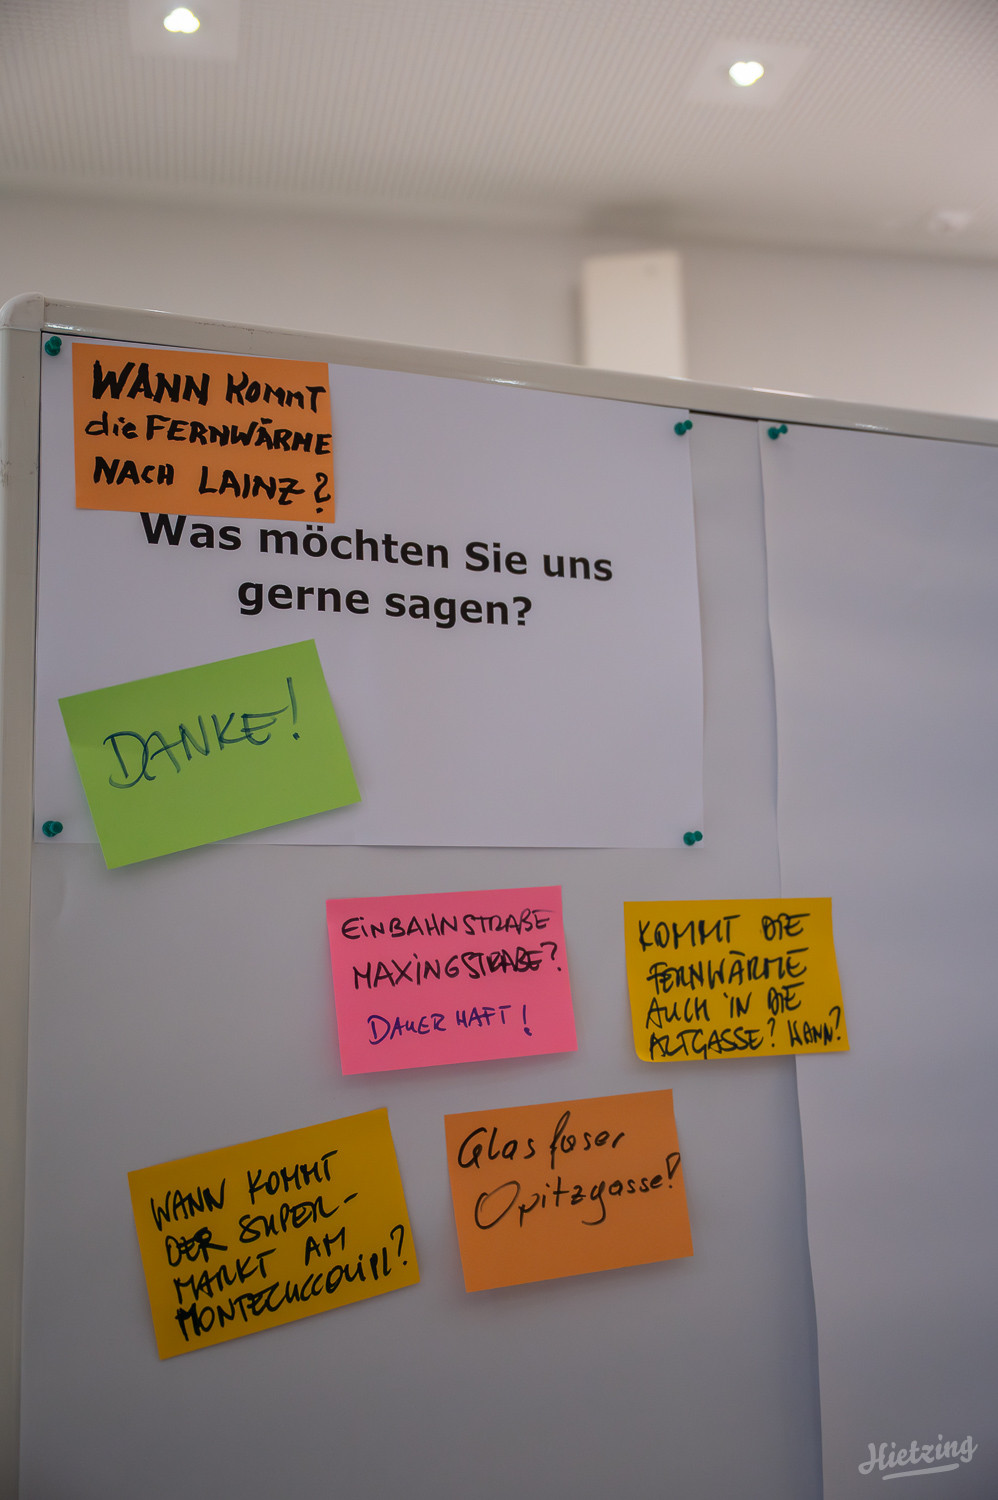 WANN KOMMT
die FERNWÄRME
NACH LAINZ?
Was möchten Sie uns
gerne sagen?
DANKE!
EINBAHNSTRAßE
MAXINGSTRAßE?
DAUERHAFT!
KOMMT DIE
FERNWÄRME
AUCH IN DIE
ALTGASSE? WANN?
WANN KOMMT
DER SUPER-
MARKT AM
MONTECUCCOLIPL?
Glasfaser
Opitzgasse?
Hietzing